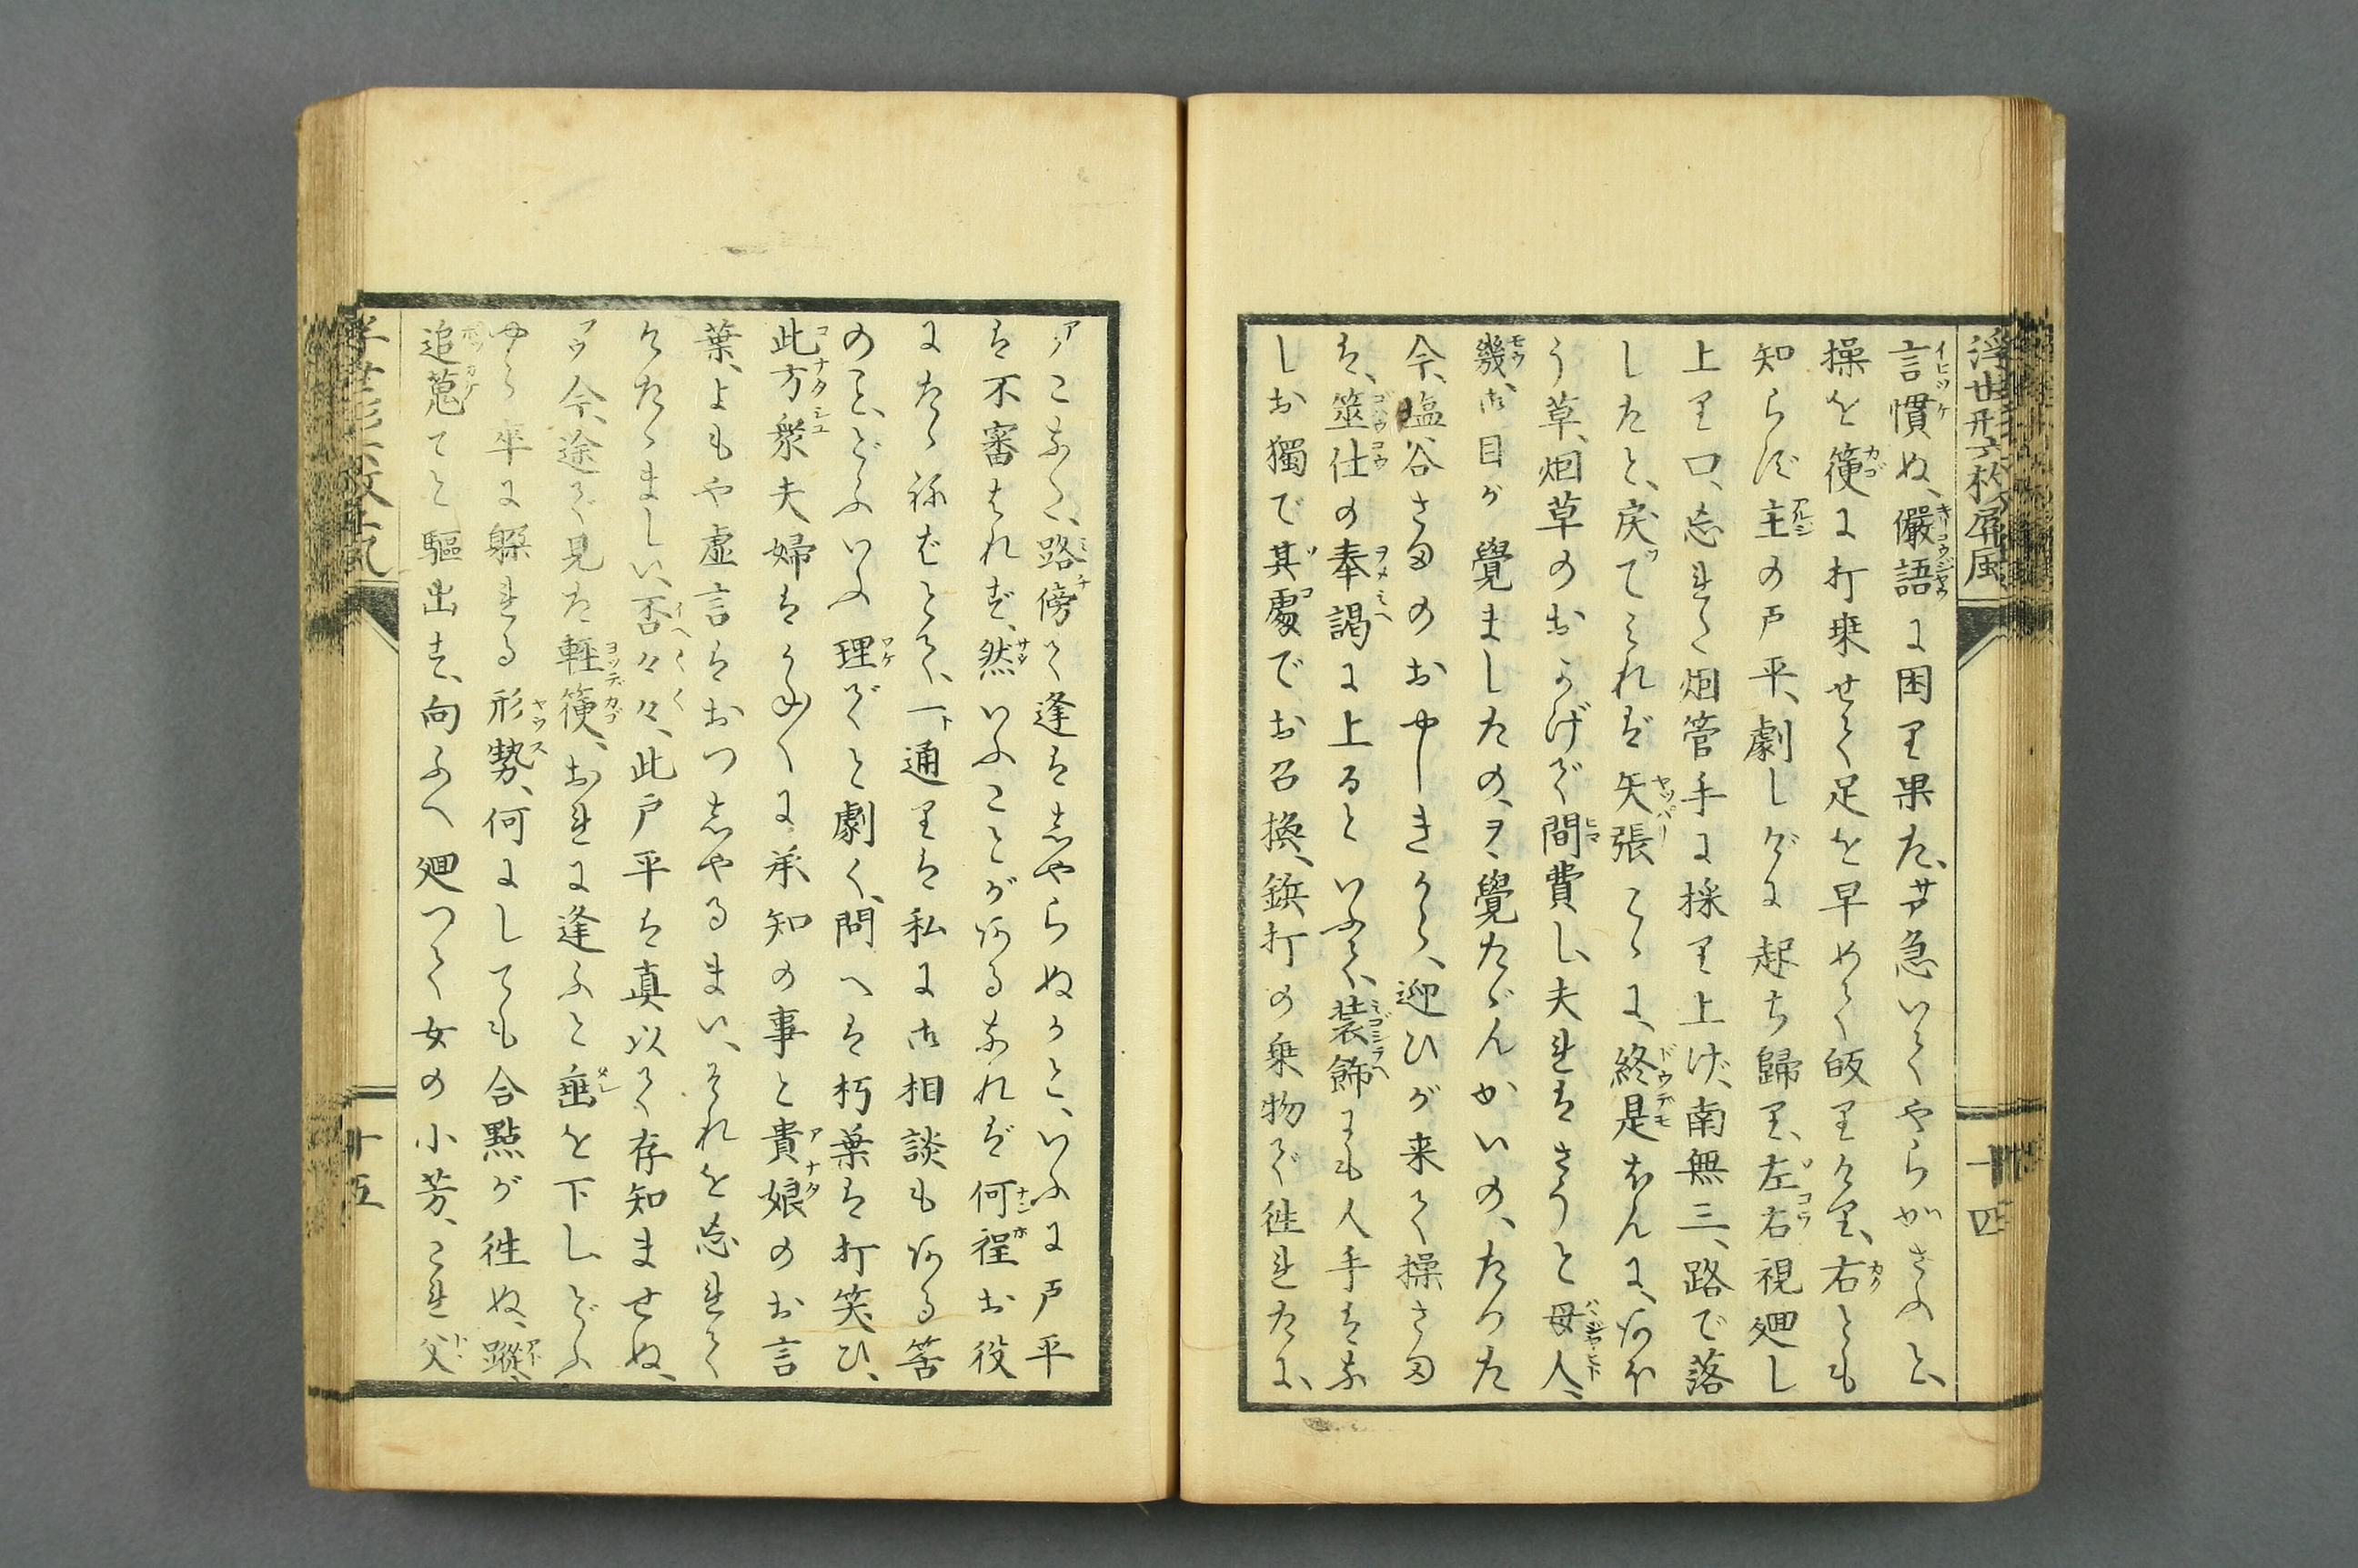 浮世形六枚屏風
十四
言慣ぬ、儼語に困り果た、サア急いてやらがいさふと、
操を箯に打乗せて足を早めて皈りける、右とも
知らず主の戸平、劇しげに起ち歸り、左右視廻し
上り口、忘れた烟管手に採り上げ、南無三、路で落
したと、戻つてみれば矢張こゝに、終是ほんに、何ぼ
う草、烟草のおかげで間費し、夫れはさうと母人、
幾、御目が覺ましたの、ヲヽ覺たゞんかいの、たつた
今、塩谷さまのおやしきから、迎ひが来て操さま
は、筮仕の奉謁に上るといふて、装飾にも人手はな
しお獨で其處でお召換、鋲打の乗物で徃れたに、
アノこなたは、路傍で逢はしやらぬかと、いふに戸平
は不審はれず、然いふことが何るなれば何程お役
にたゝねばとて、一通りは私に御相談も何る筈
のこと、どふいふ理ぞと劇く、問へば朽葉は打笑ひ、
此方衆夫婦はかねがねに承知の事と貴娘のお言
葉、よもや虚言はおつしやるまい、それを忘れて
けたゝましい、否々々、此戸平は真以て存知ませぬ、
アヽ今、途で見た軽箯、おれに逢ふと垂を下し、どふ
やら卒に躱れる形勢、何にしても合點が徃ぬ、蹤、
追蒐てと驅出す、向ふへ廻つて女の小芳、これ父
十五